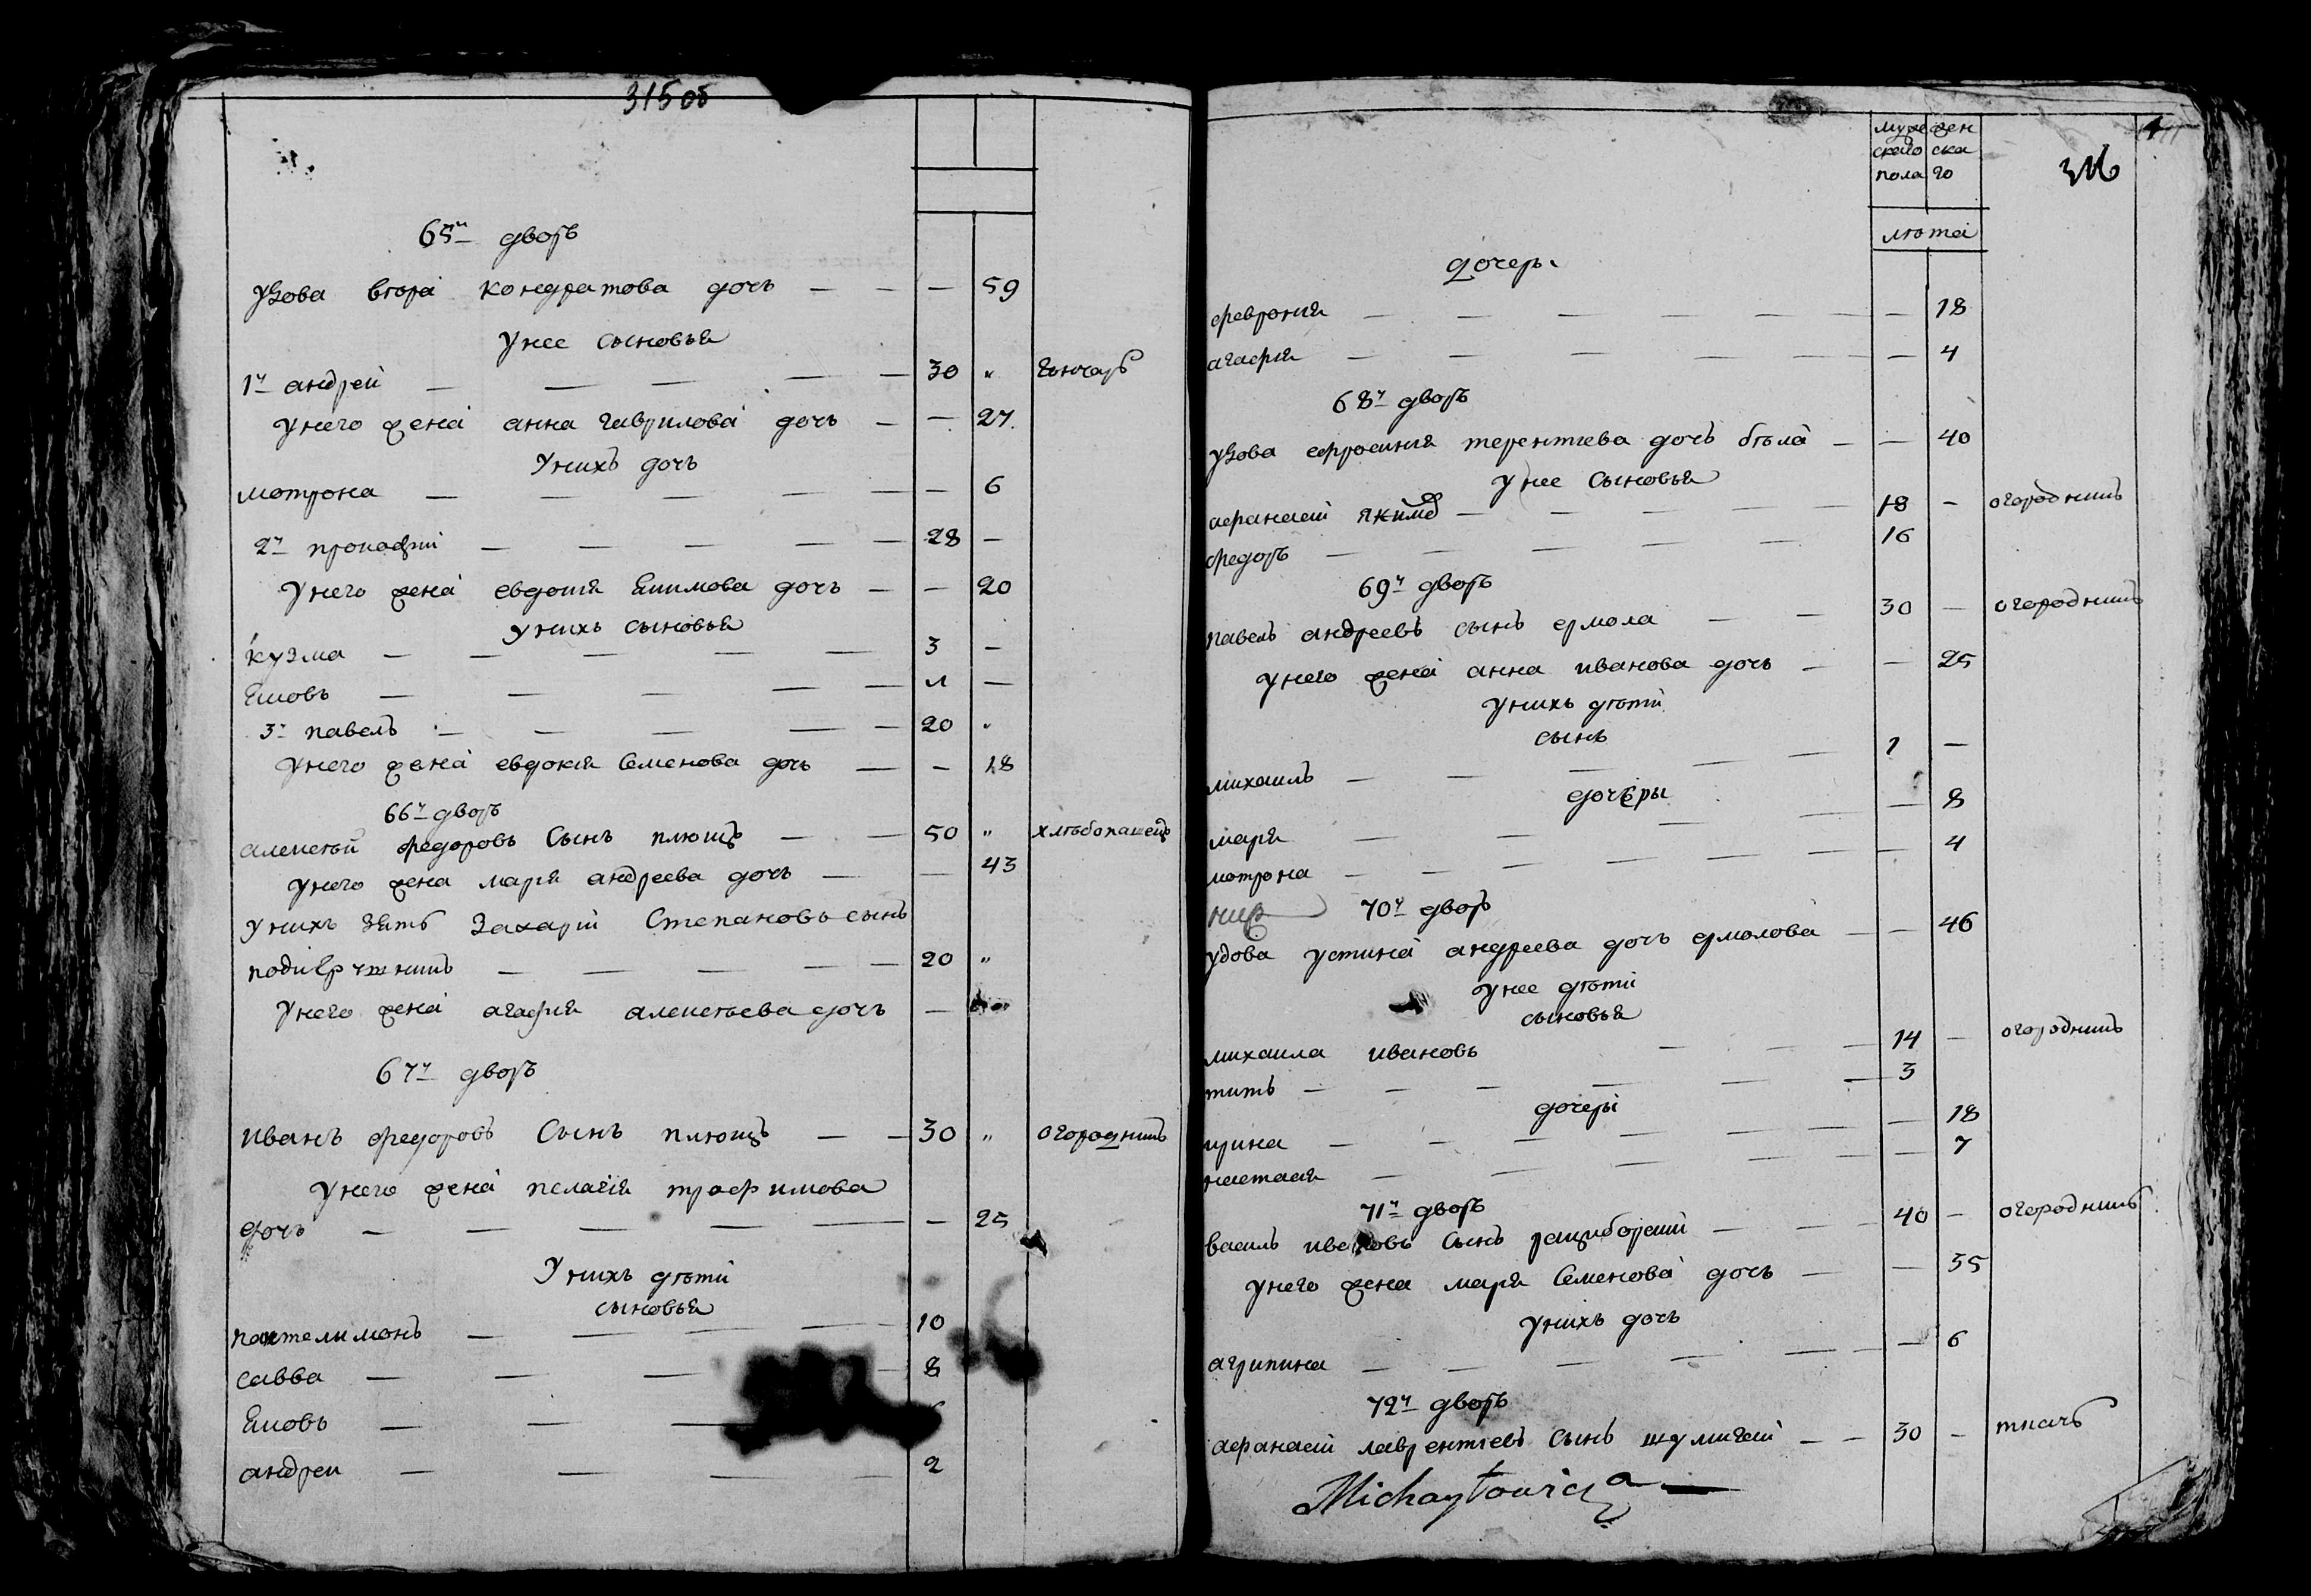 315 об
65й дворъ
Удова кондратова дочь — — — 59
Унее сыновья
1й андрей — — — — — 30 „ гончаръ
Унего жена анна гаврилова дочь — — 27
Унихъ дочь
мотрона — — — — — — 6
2й прокофiй — — — — — 28 —
Унего жена евдокiя Якимова дочь — — 20
Унихъ сыновья
кузма — — — — — 3 —
Яковъ — — — — — 1 —
3й павелъ — — — — 20 „
Унего жена евдокiя Семенова дочь — — 18
66й дворъ
алексѣй федоровъ Сынъ плющъ — — 50 „ хлѣбопашецъ
Унего жена марiя андреева дочь — — 43
Унихъ зять Захарiй Степановъ сынъ
— — — — 20 „
Унего жена агафiя алексѣева дочь —
67й дворъ
Иванъ федоровъ Сынъ плющъ — — 30 „ огородникъ
Унего жена пелагiя трофимова
дочь — — — — — — 25
Унихъ дѣти
сыновья
пантелимонъ — — — — 10
савва — — — 8
Яковъ — — —
андреи — — — — 2
мужескаго пола женскаго
лѣта
316
дочери
феврония — — — — — — 18
агафiя — — — — — 4
68й дворъ
Удова ефросиния терентiева дочь бѣла — — 40
Унее Сыновья
афанасiй якимъ — — — — 18 — огородникъ
федоръ — — — — — 16
69й дворъ
павелъ андреевъ сынъ ермола — — 30 — огородникъ
Унего жена анна иванова дочь — — 25
Унихъ дѣти
сынъ
михаилъ — — — — — 1 —
дочеры
марiя — — — — — 8
мотрона — — — — — — 4
70й дворъ
удова устина андреева дочь ермолова — — 46
Унее дѣти
сыновья
михаила ивановъ — — — 14 — огородникъ
титъ — — — — — — 3
дочери
ирина — — — — — — — 18
настасiя — — — — — — 7
71й дворъ
василь ивановъ Сынъ рациборскiй — — — 40 — огородникъ
Унего жена марiя Семенова дочь — — 35
Унихъ дочь
агрипина — — — — — — — 6
72й дворъ
афанасiй лаврентiевъ Сынъ — — 30 — ткачъ
Michayłowicz